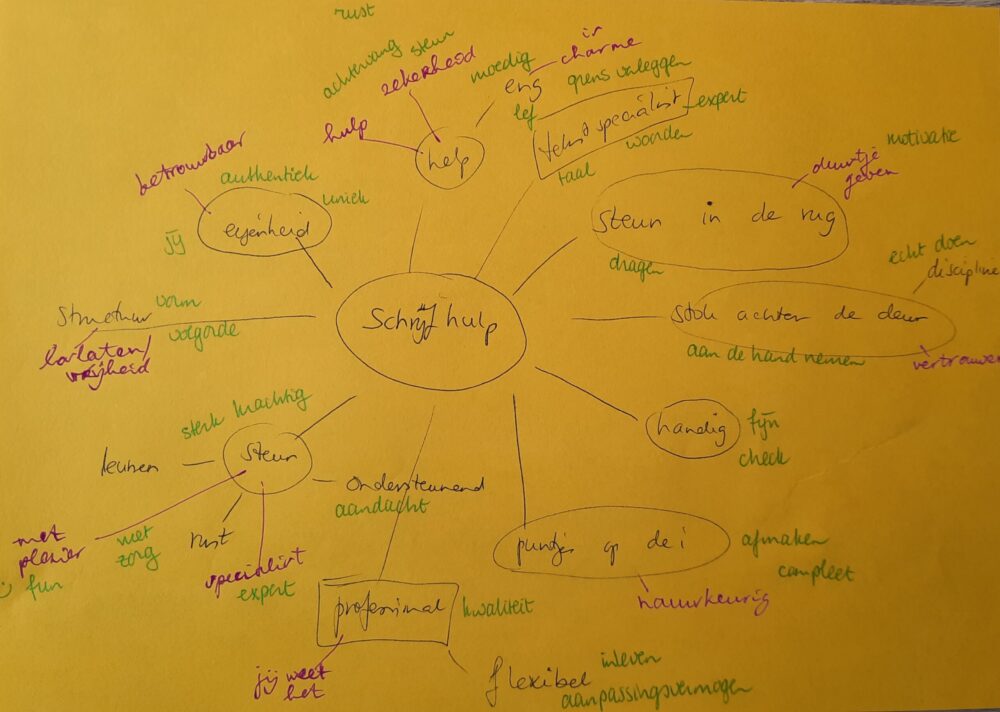 rust
achtervang steun
zekerheid
hulp
help
moedig
eng
lef
charme
grens verleggen
tekstspecialist
expert
woorden
taal
betrouwbaar
authentiek
uniek
eigenheid
jij
steun in de rug
duwtje
geven
motivatie
dragen
Schrijfhulp
structuur
vorm
volgorde
loslaten/
vrijheid
stok achter de deur
echt doen
discipline
aan de hand nemen
vertrouwen
sterk krachtig
steun
leunen
ondersteunend
aandacht
met
plezier
fun
met
zorg
rust
specialist
expert
handig
fijn
check
puntjes op de i
afmaken
compleet
nauwkeurig
professional
kwaliteit
jij weet
het
flexibel
inleven
aanpassingsvermogen